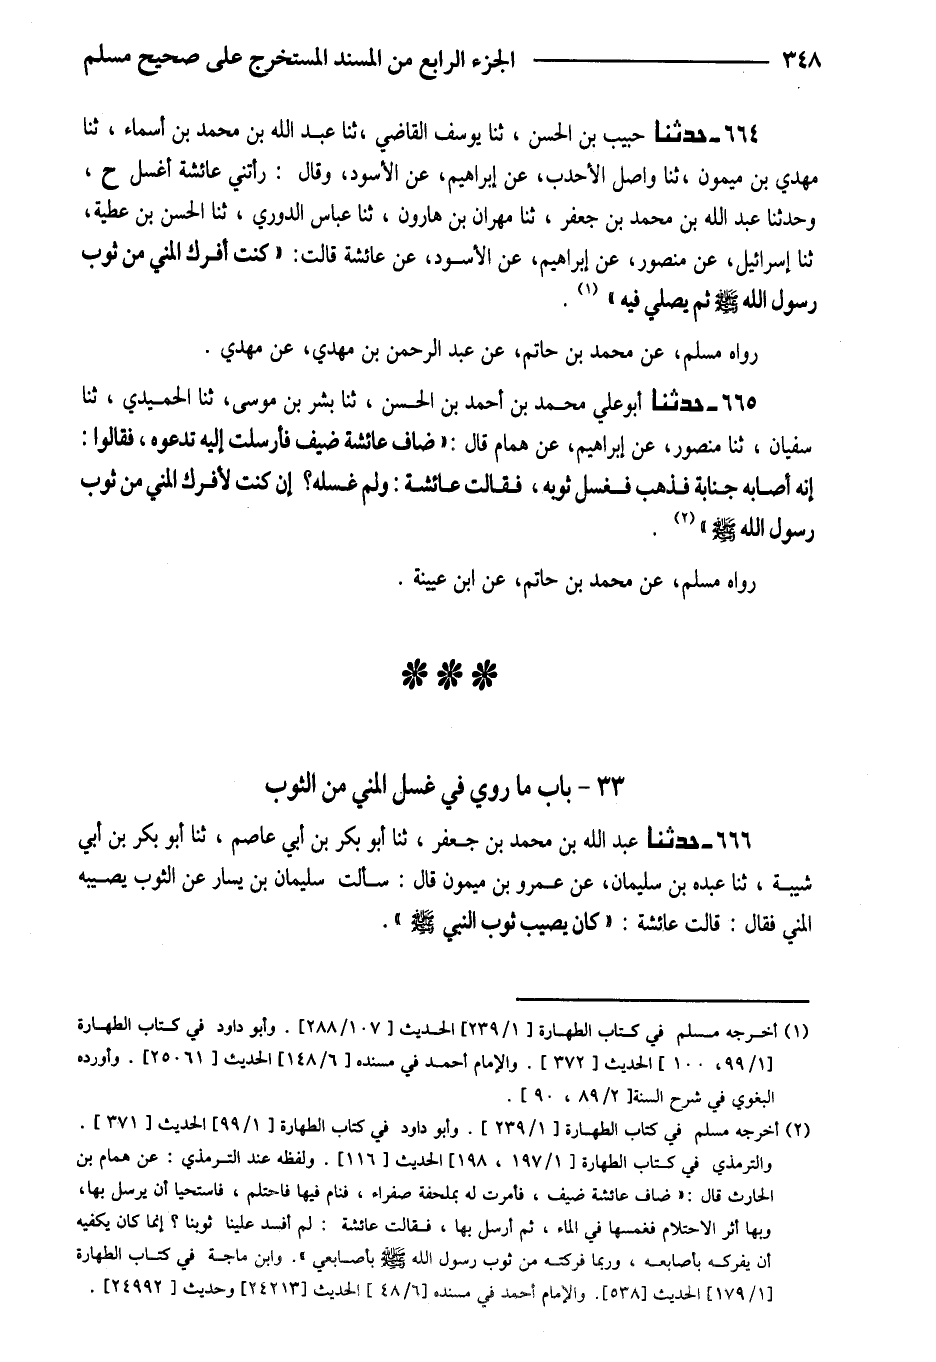 ٣٤٨ ــــــــ الجزء الرابع من المسند المستخرج على صحيح مسلم
٦٦٤ـ حدثنا حبيب بن الحسن ، ثنا يوسف القاضي ،ثنا عبد الله بن محمد بن أسماء ، ثنا
مهدي بن ميمون ،ثنا واصل الأحدب، عن إبراهيم، عن الأسود، وقال : رأتني عائشة أغسل ح ،
وحدثنا عبد الله بن محمد بن جعفر ، ثنا مهران بن هارون ، ثنا عباس الدوري ، ثنا الحسن بن عطية،
ثنا إسرائيل، عن منصور، عن إبراهيم، عن الأسود، عن عائشة قالت: « كنت أفرك المني من ثوب
رسول الله ﷺ ثم يصلي فيه » (١) .
رواه مسلم، عن محمد بن حاتم، عن عبد الرحمن بن مهدي، عن مهدي .
٦٦٥ـ حدثنا أبوعلي محمد بن أحمد بن الحسن ، ثنا بشر بن موسى، ثنا الحميدي ، ثنا
سفيان ، ثنا منصور، عن إبراهيم، عن همام قال :« ضاف عائشة ضيف فأرسلت إليه تدعوه ، فقالوا :
إنه أصابه جنابة فذهب فغسل ثوبه ، فقالت عائشة : ولم غسله؟ إن كنت لأفرك المني من ثوب
رسول الله ﷺ » (٢) .
رواه مسلم، عن محمد بن حاتم، عن ابن عيينة .
٣٣ - باب ما روي في غسل المني من الثوب
٦٦٦ـ حدثنا عبد الله بن محمد بن جعفر ، ثنا أبو بكر بن أبي عاصم ، ثنا أبو بكر بن أبي
شيبة ، ثنا عبده بن سليمان، عن عمرو بن ميمون قال : سألت سليمان بن يسار عن الثوب يصيبه
المني فقال : قالت عائشة : « كان يصيب ثوب النبي ﷺ » .
(١) أخرجه مسلم في كتاب الطهارة [ ٢٣٩/١] الحديث [ ٢٨٨/١٠٧] . وأبو داود في كتاب الطهارة
[٩٩/١، ١٠٠ ] الحديث [ ٣٧٢ ] . والإمام أحمد في مسنده [ ١٤٨/٦] الحديث [ ٢٥٠٦١] . وأورده
البغوي في شرح السنة[ ٨٩/٢ ، ٩٠ ] .
(٢) أخرجه مسلم في كتاب الطهارة [ ٢٣٩/١ ] . وأبو داود في كتاب الطهارة [ ٩٩/١] الحديث [ ٣٧١ ] .
والترمذي في كتاب الطهارة [ ١٩٧/١ ، ١٩٨] الحديث [ ١١٦] . ولفظه عند الترمذي : عن همام بن
الحارث قال :« ضاف عائشة ضيف ، فأمرت له بملحفة صفراء ، فنام فيها فاحتلم ، فاستحيا أن يرسل بها،
وبها أثر الاحتلام فغمسها في الماء ، ثم أرسل بها ، فقالت عائشة : لم أفسد علينا ثوبنا ؟ إنما كان يكفيه
أن يفركه بأصابعه ، وربما فركته من ثوب رسول الله ﷺ بأصابعي ». وابن ماجة في كتاب الطهارة
[١٧٩/١] الحديث [٥٣٨]. والإمام أحمد في مسنده [٤٨/٦ ] الحديث [٢٤٢١٣] وحديث [ ٢٤٩٩٢] .